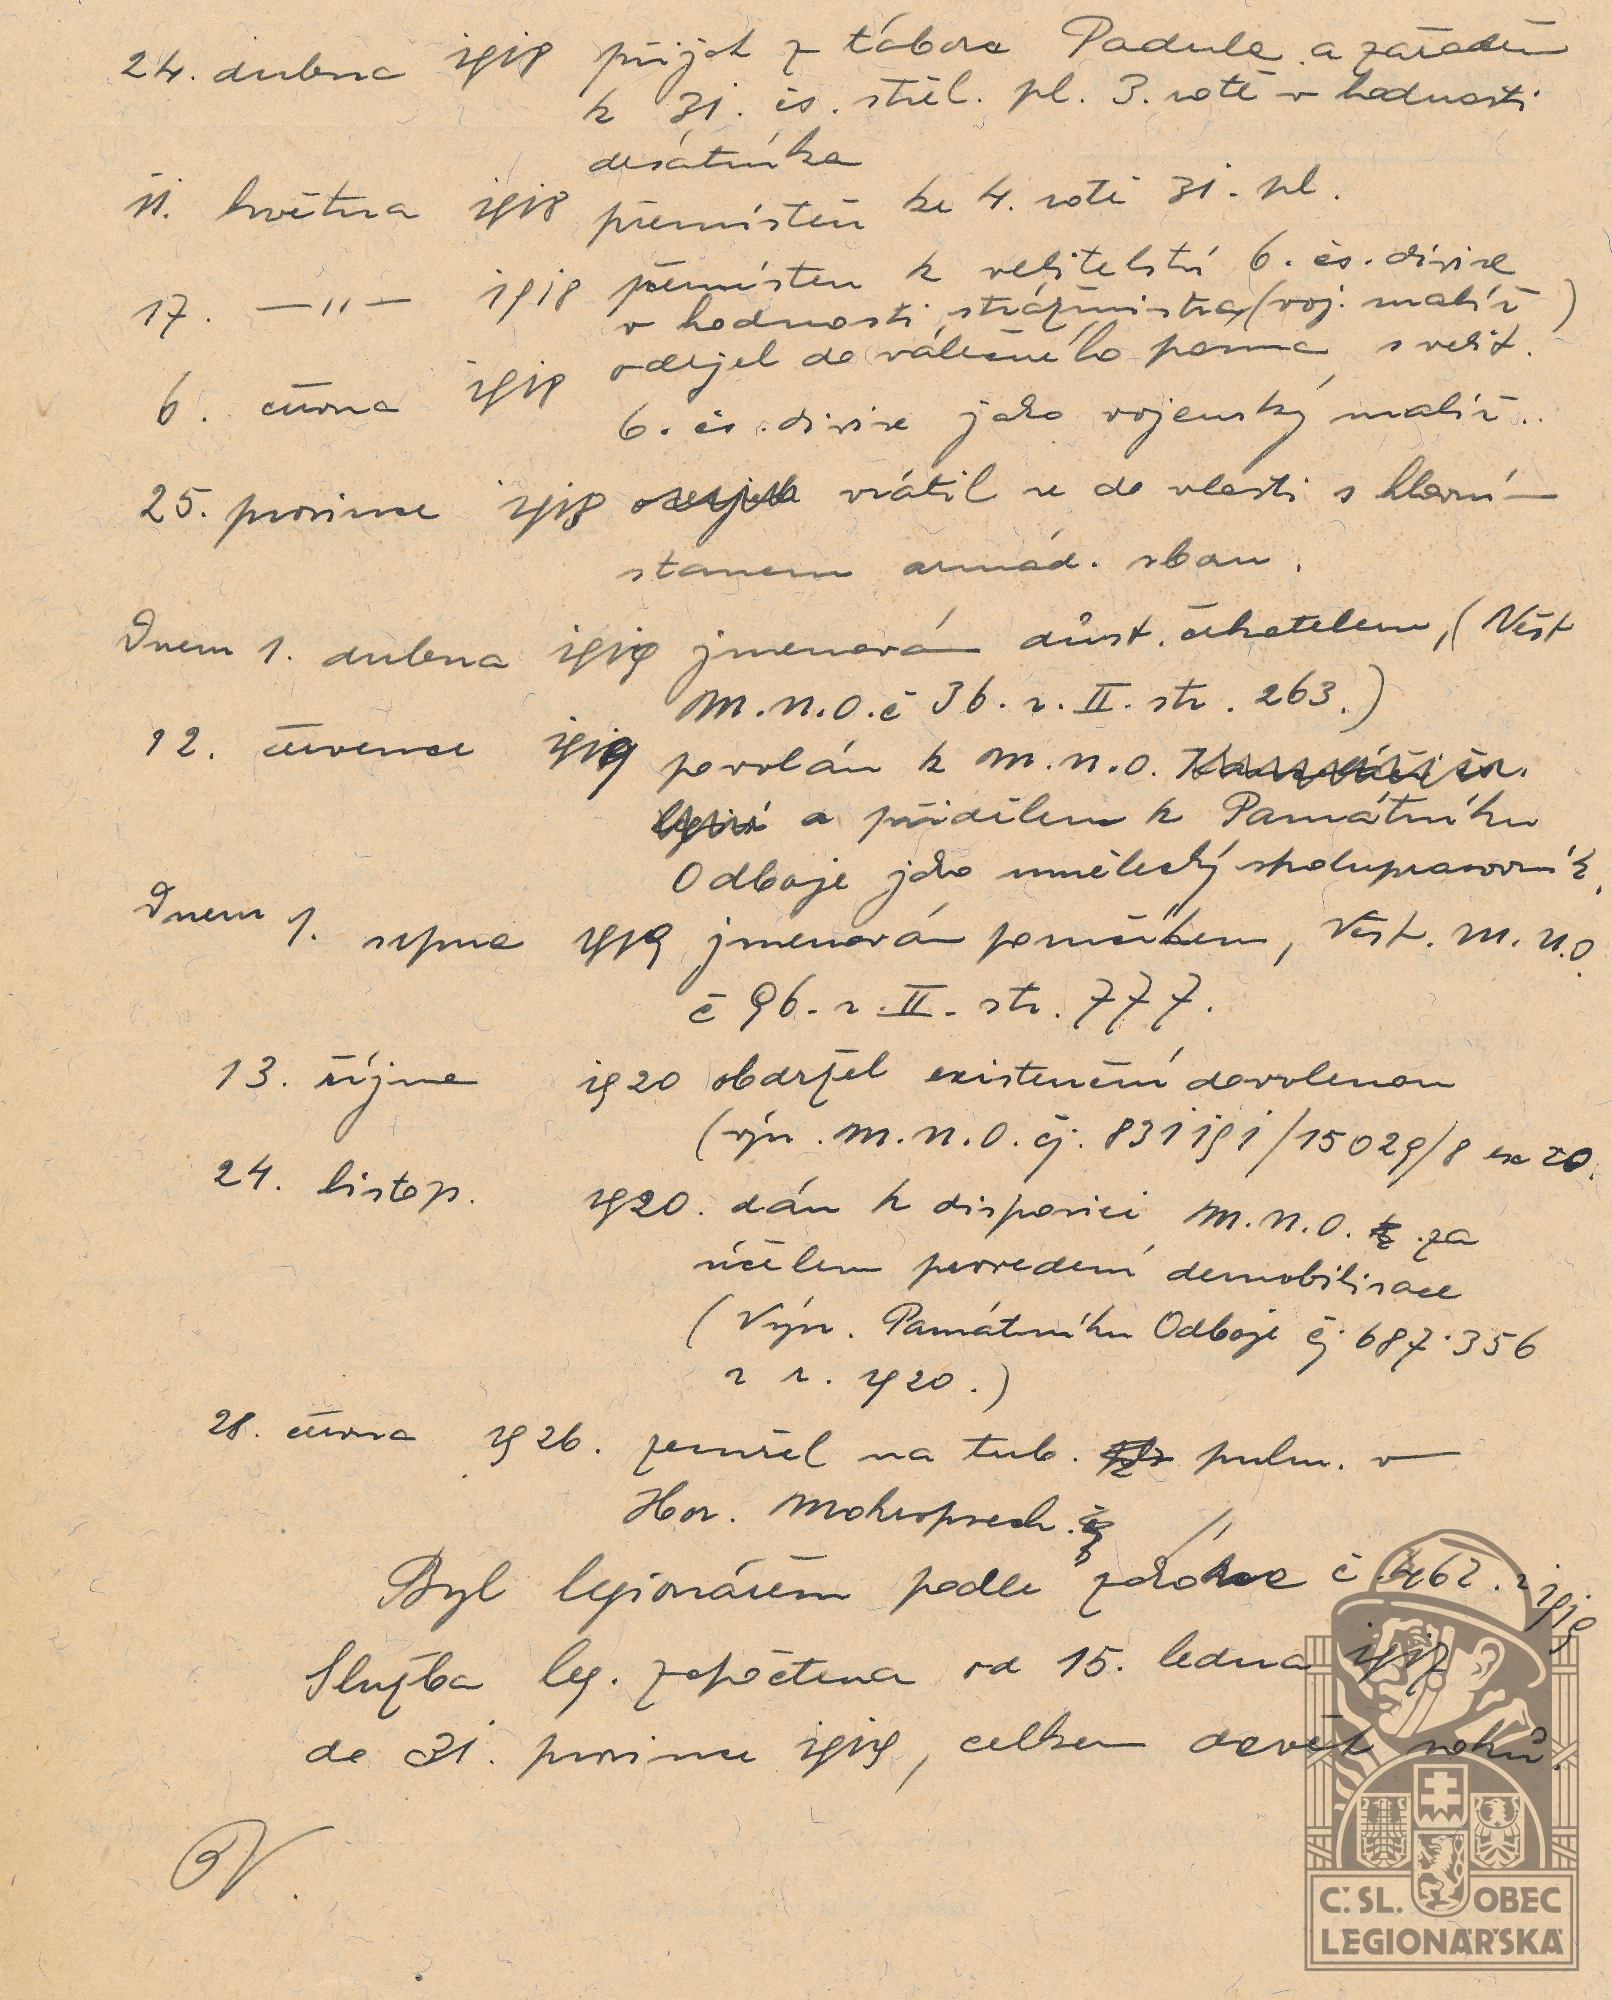 24. dubna 1918 přijat z tábora Padula a zařaděn
k 31. čs. střel. pl. 3. rotě v hodnosti
desátníka
11. května 1918 přemístěn ke 4. rotě 31. pl.
17. —"— 1918 přemístěn k velitelství 6. čs. divise
v hodnosti strážmistra (voj. malíř)
6. června 1918 odejel do válečného pásma s velit.
6. čs. divise jako vojenský malíř.
25. prosince 1918 vrátil se do vlasti s hlavním
stanem armád. sboru.
Dnem 1. dubna 1919 jmenován důst. čekatelem, (Věst
M.N.O. č 36. r. II. str. 263.)
12. července 1919 povolán k M.N.O.
a přidělen k Památníku
Odboje jako umělecký spolupracovník,
Dnem 1. srpna 1919 jmenován poručíkem, Věst. M.N.O.
č 96. r. II. str. 777.
13. října 1920 obdržel existenční dovolenou
(výn. M.N.O. čj. 831191/15029/8 ex 20.
24. listop. 1920. dán k disposici M.N.O. za
účelem provedení demobilisace
(Výn. Památníku Odboje čj. 687.356
z r. 1920.)
28. června 1926. zemřel na tub. pulm. v
Hor. Mokropsech.
Byl legionářem podle zákona č 462. z 1919
Služba leg. započtena od 15. ledna 1917
do 31. prosince 1919, celkem devět roků.
Č.SL. OBEC
LEGIONÁŘSKÁ